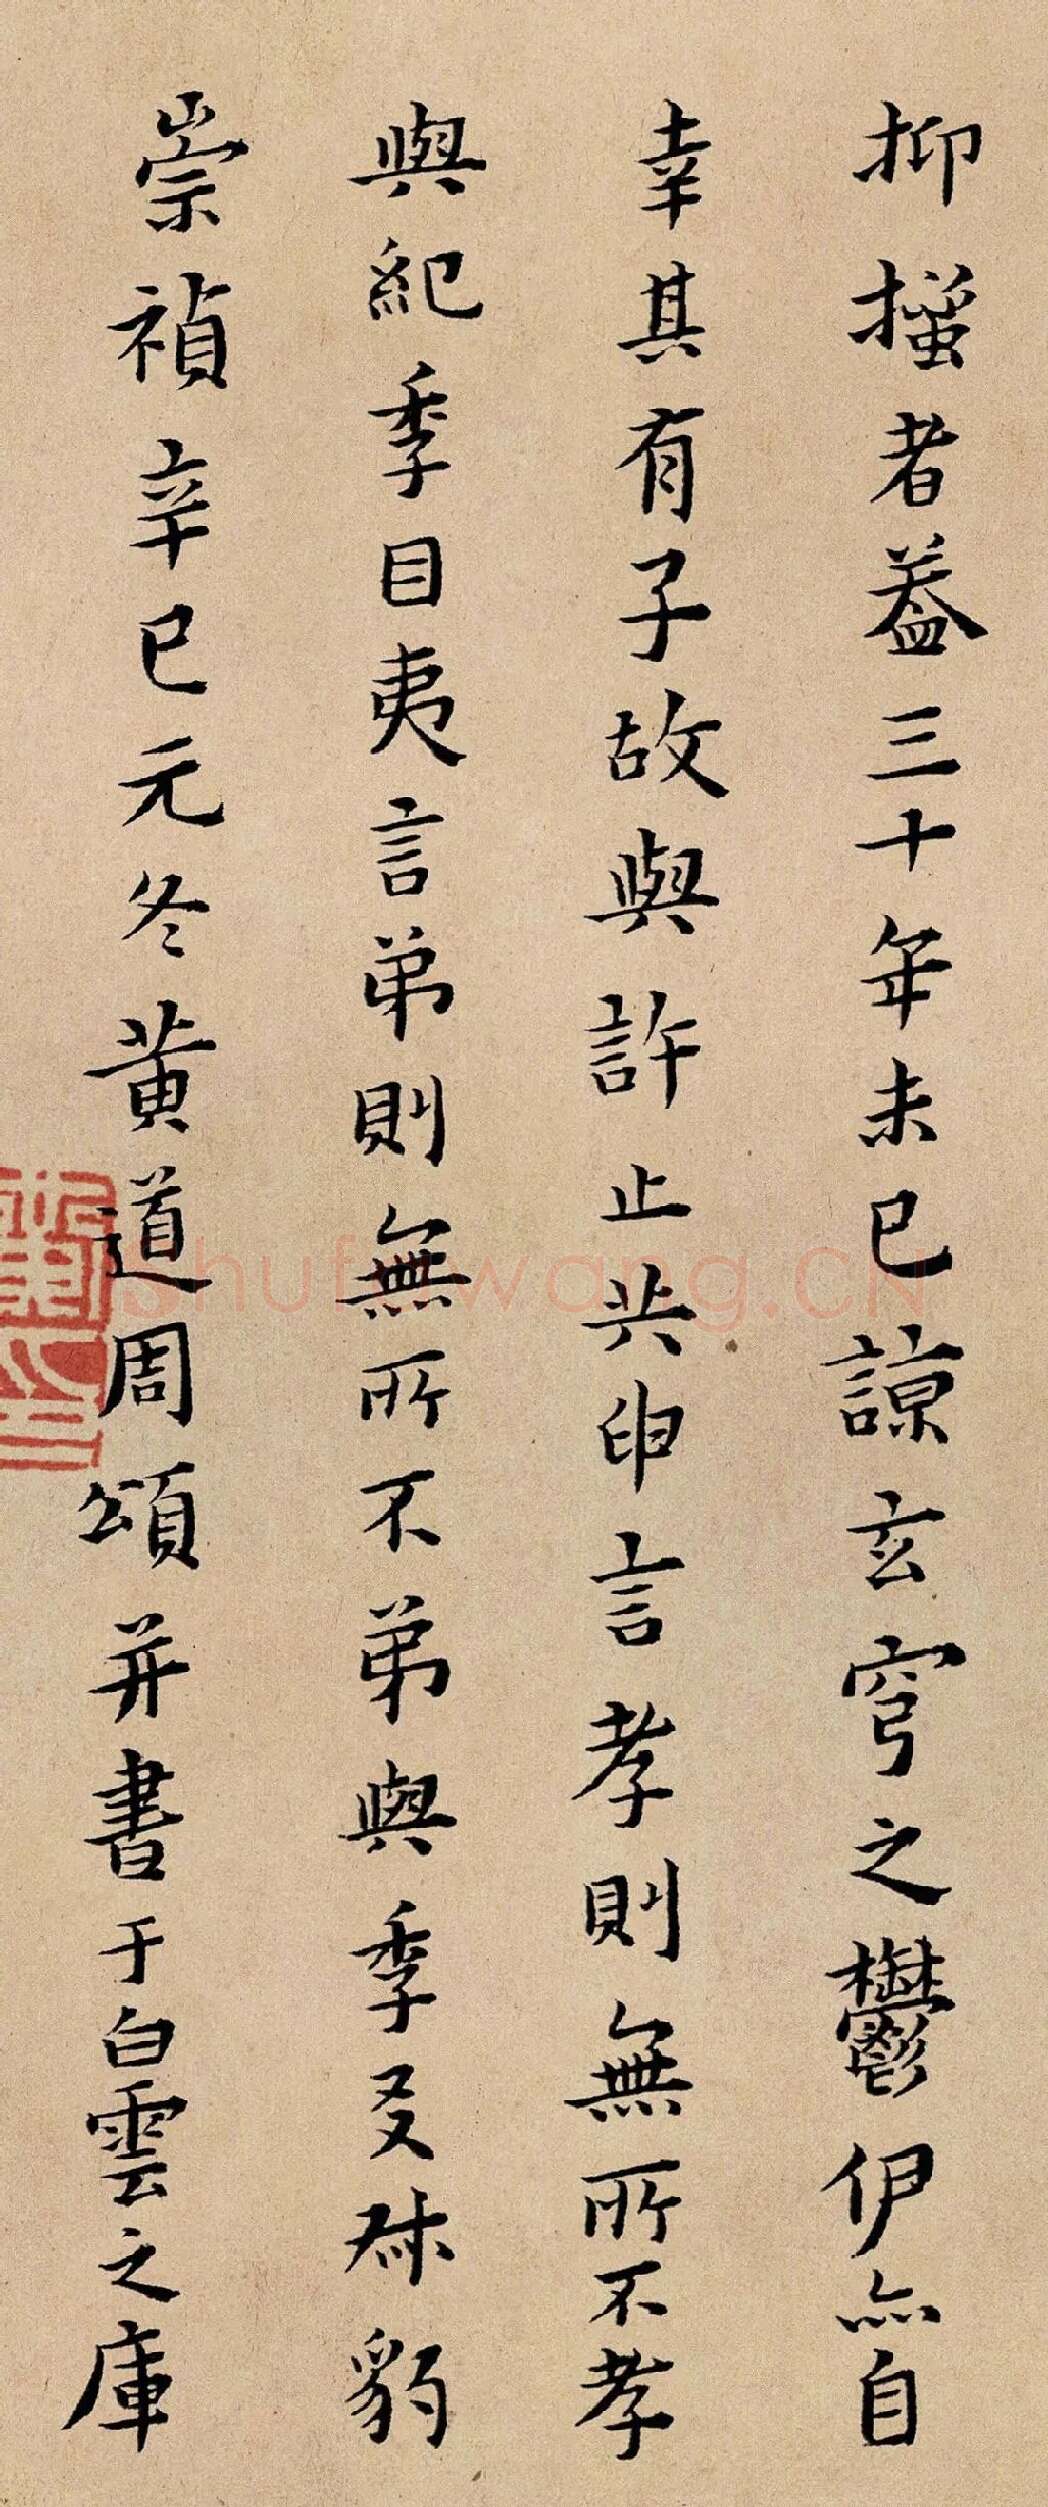 抑搔者蓋三十年未已諒玄穹之鬱伊亦自
幸其有子故與許止共母言孝則無所不孝
與紀季目夷言弟則無所不弟與季叕叔豹
崇禎辛巳元冬黃道周頌并書于白雲之庫
shufawang.CN